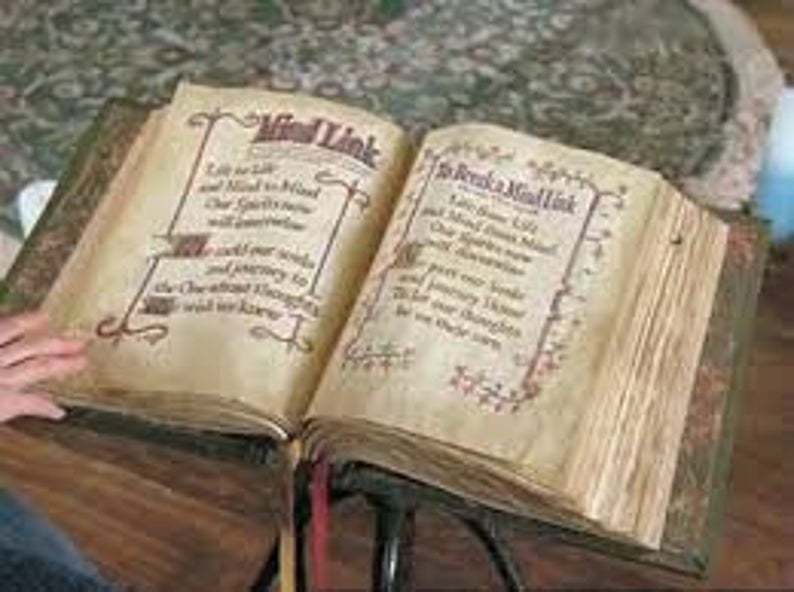 Mind Link
Life to Life
and Mind to Mind
Our Spirits now
will intertwine
meld our souls
and journey to
the One whose thoughts
wish we knew
To Break a Mind Link
Life from Life
and Mind from Mind
Our Spirits now
will
part our souls
and journey Home
To let our thoughts
be